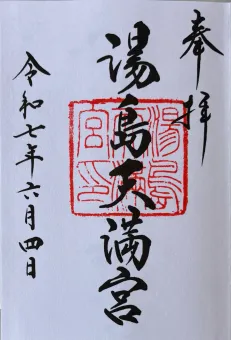 奉拝
湯島天満宮
令和七年六月四日